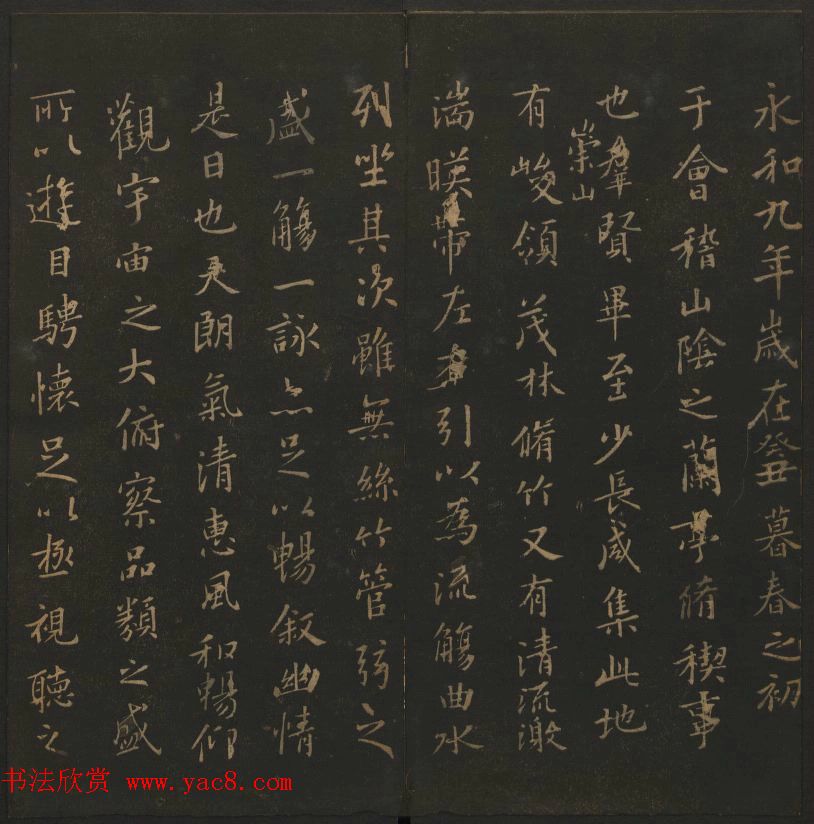 永和九年歲在癸丑暮春之初
于會稽山陰之蘭亭脩稧事
也羣賢畢至少長咸集此地
崇山
有峻領茂林脩竹又有清流激
湍暎帶左右引以為流觴曲水
列坐其次雖無絲竹管弦之
盛一觴一詠亦足以暢叙幽情
是日也天朗氣清惠風和暢仰
觀宇宙之大俯察品類之盛
所以遊目騁懷足以極視聽之
书法欣赏 www.yac8.com